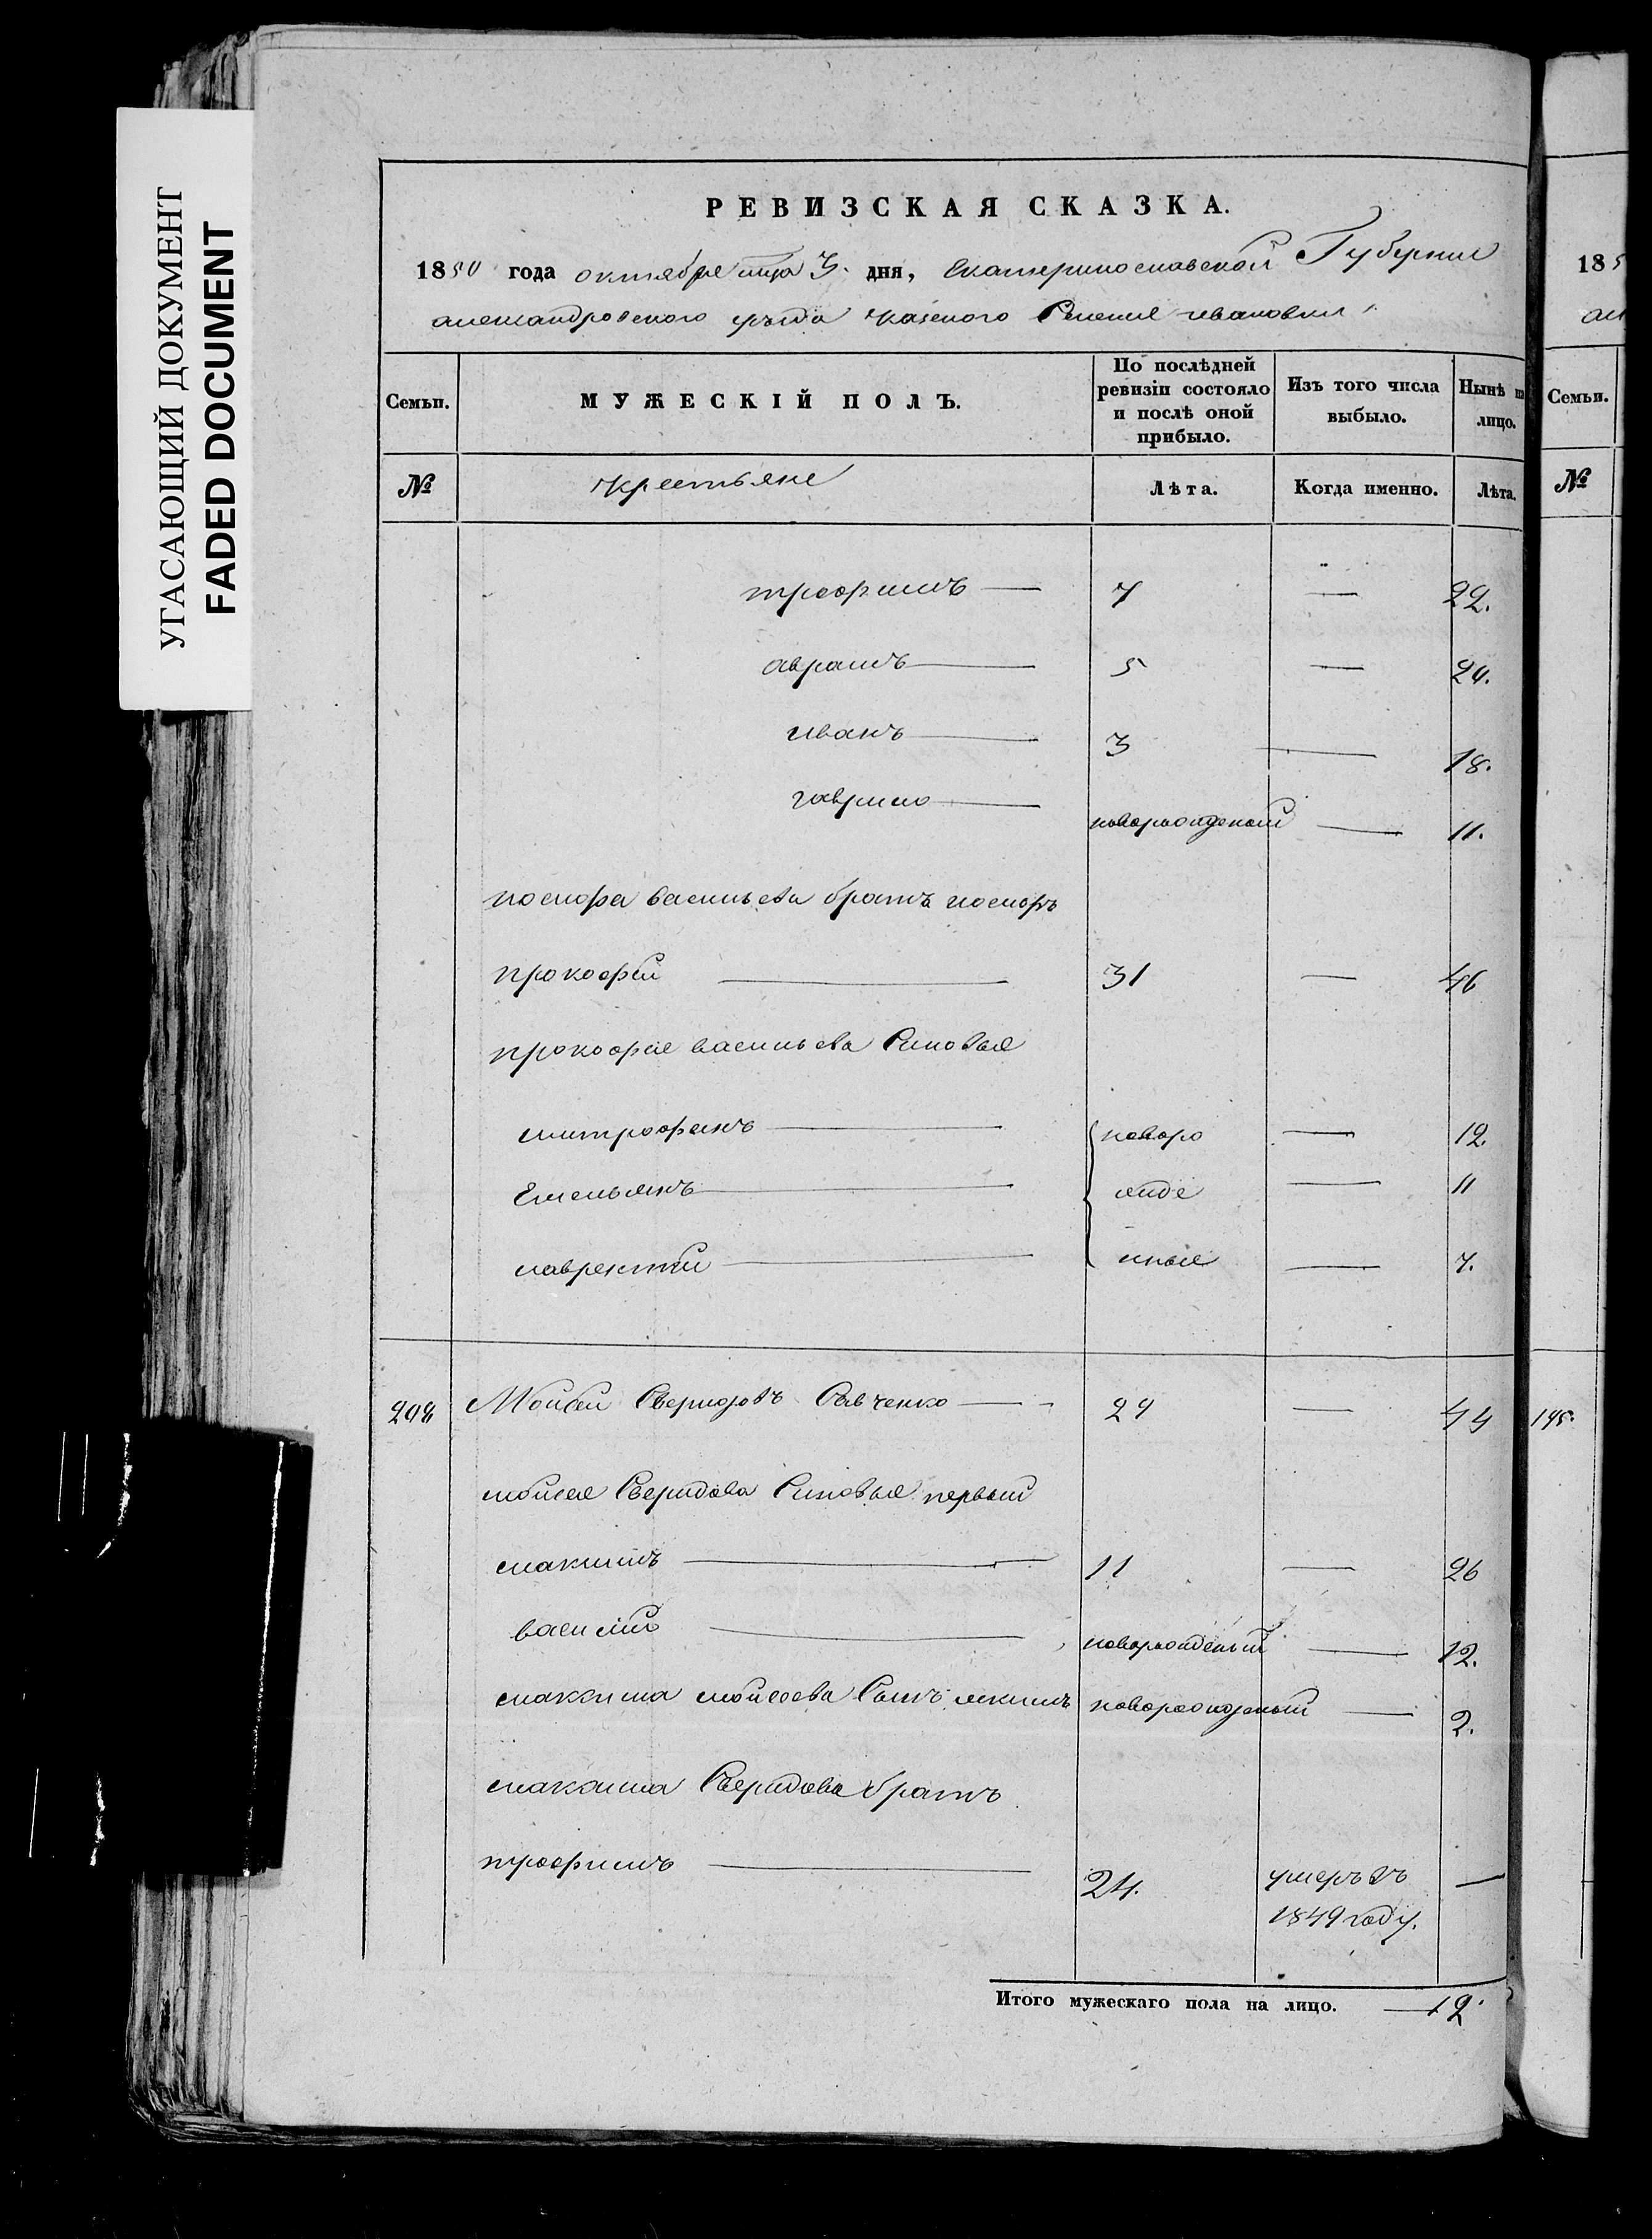 УГАСАЮЩИЙ ДОКУМЕНТ
FADED DOCUMENT
РЕВИЗСКАЯ СКАЗКА.
1850 года октября мца 3. дня, Екатеринославской Губернии
александровского уезда казеного Селения ивановки
Семьи. МУЖЕСКІЙ ПОЛЪ. По послѣдней ревизіи состояло и послѣ оной прибыло. Изъ того числа выбыло. Нынѣ на лицо.
№ крестьяне Лѣта. Когда именно. Лѣта.
трофимъ — 7 — 22.
аврамъ — 5 — 20.
иванъ — 3 — 18.
гаврило — новорожденый — 11.
иосифа васильева братъ
прокофій — 31 — 46
прокофия васильева Синовья
митрофанъ — новоро — 12.
Емельянъ — жде — 11
лаврентий — ныя — 7.
202 Мойсей Свиридовъ Савченко — 29 — 44
мойсея Свиридова Синовья первый
максимъ — 11 — 26
василий — новорожденый — 12.
максима мойсеева Сынъ якимъ новорожденый — 2.
Свиридова братъ
трофимъ — 24. умеръ въ —
1849 году.
Итого мужескаго пола на лицо. — 12.
185
Семьи.
№
195.